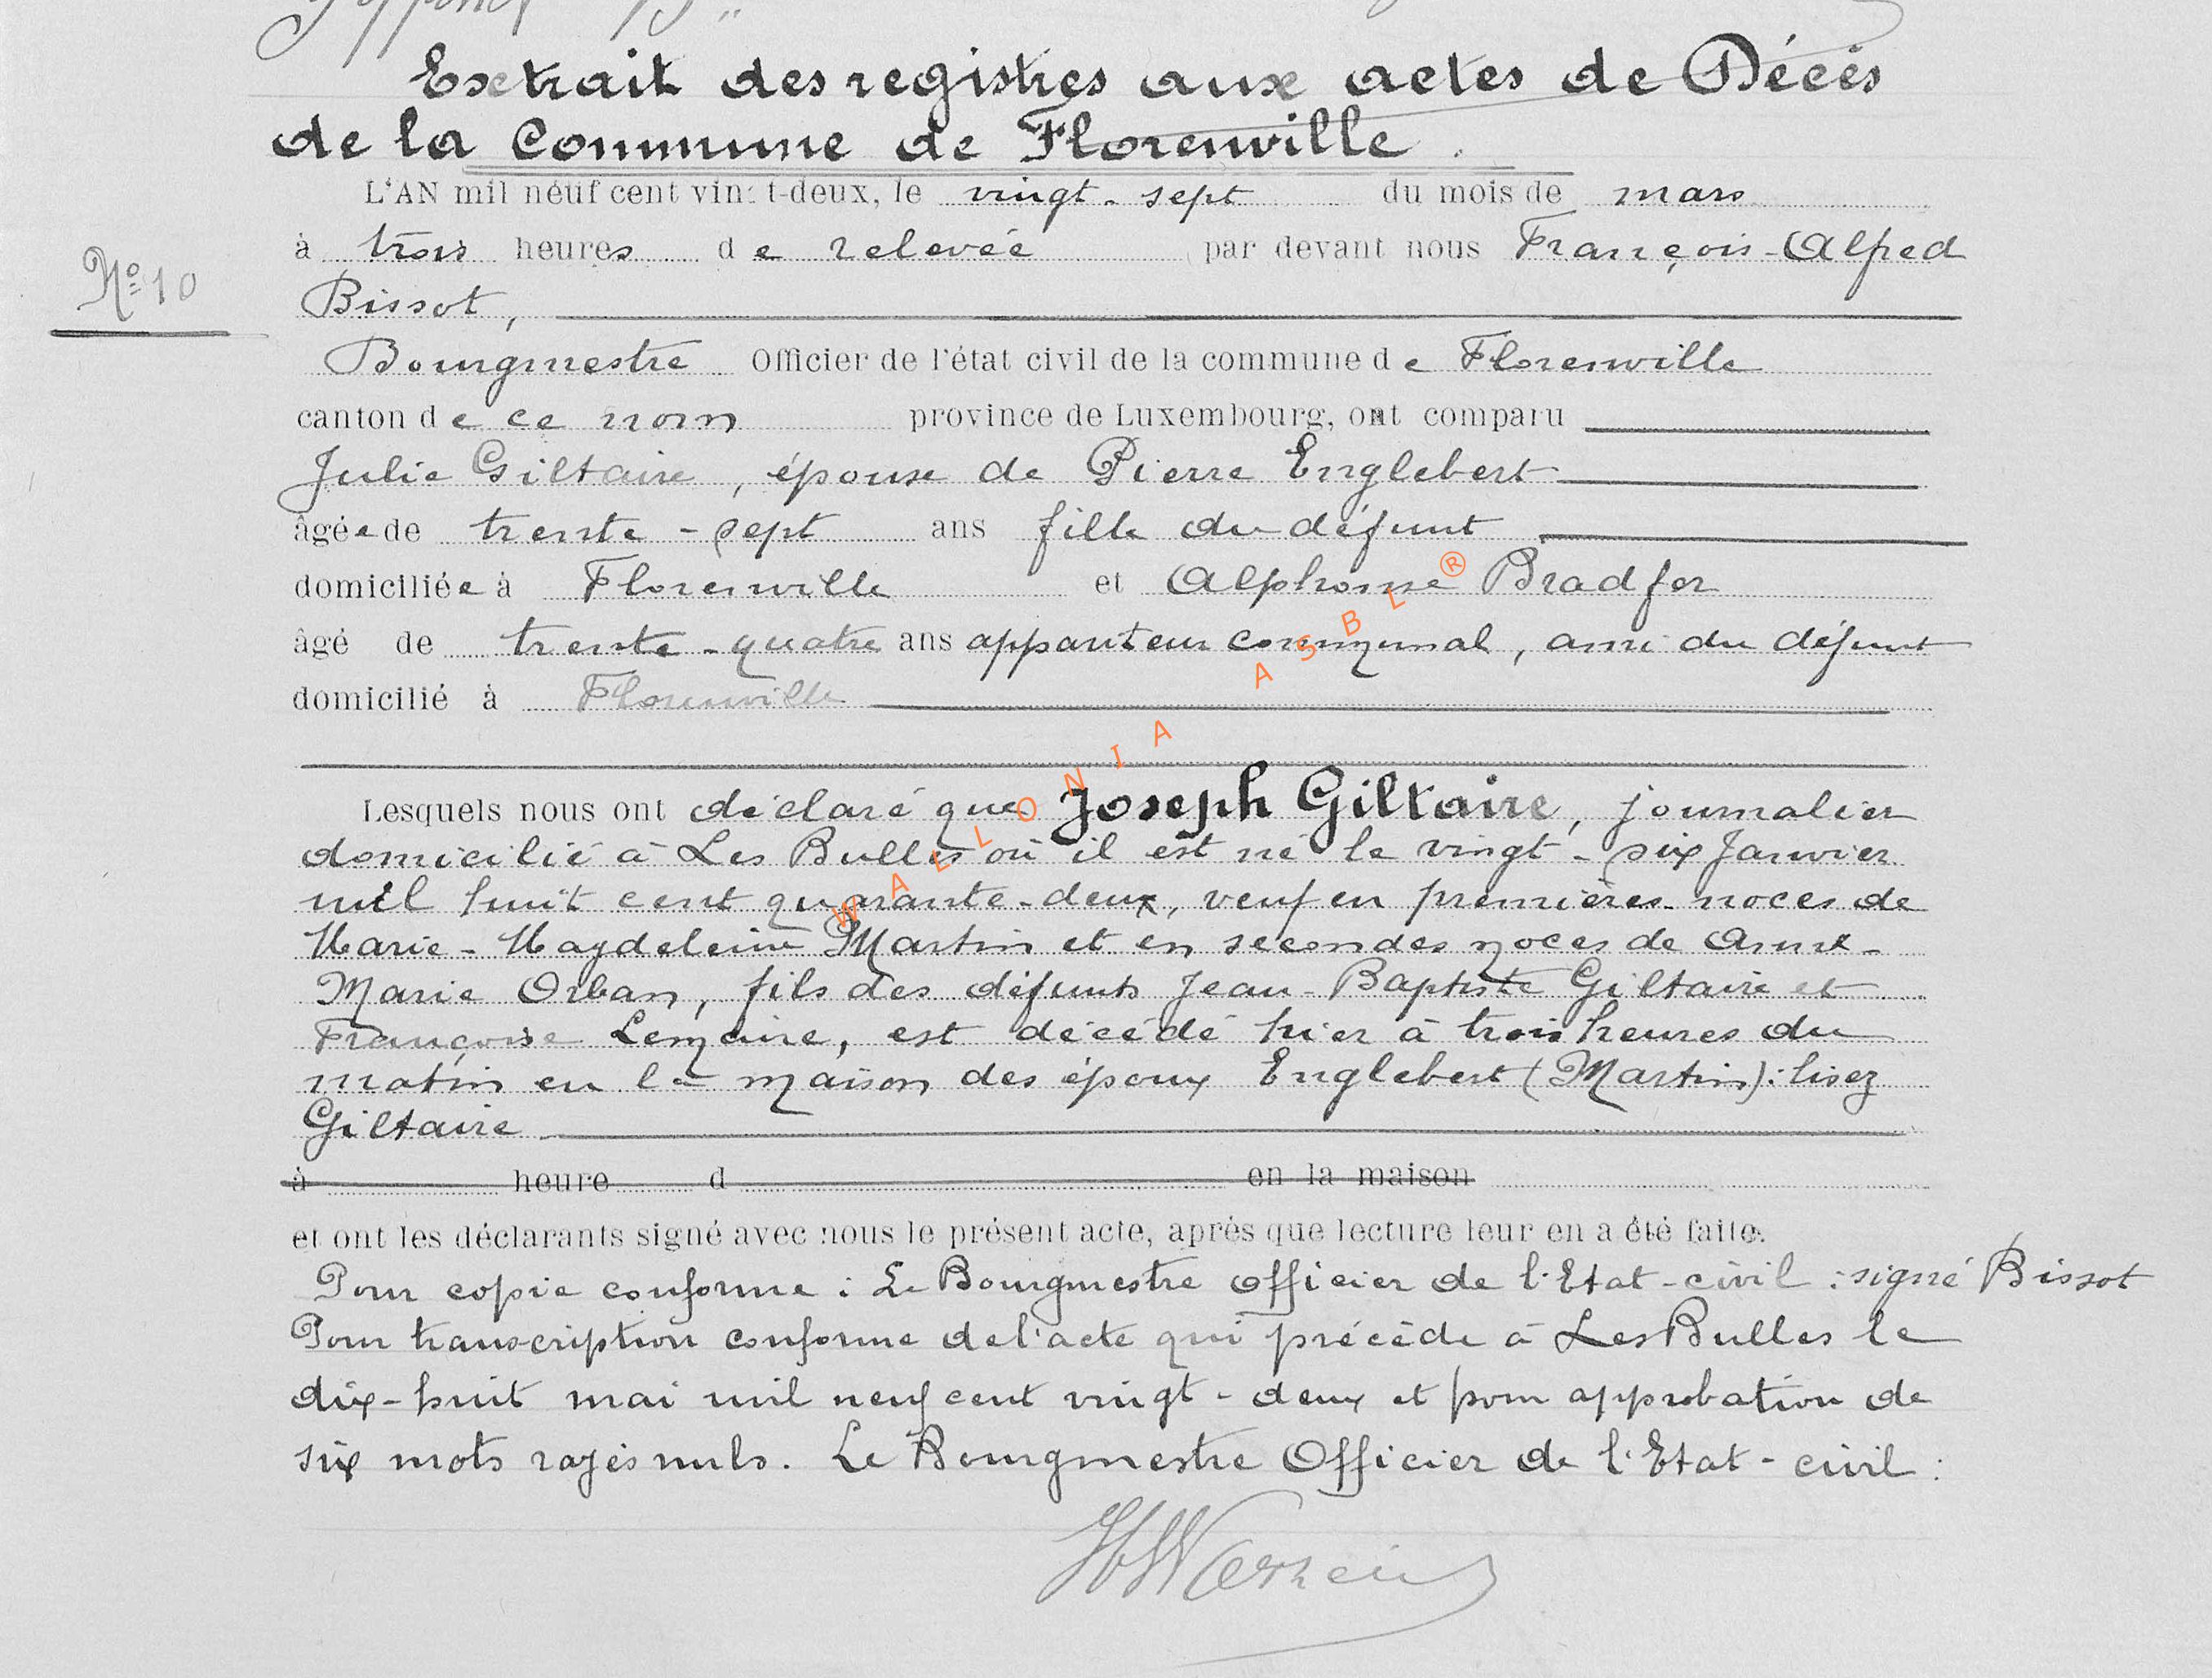 Extrait des registres aux actes de Décès
de la Commune de Florenville.
L'AN mil neuf cent vingt-deux, le vingt-sept du mois de mars
à trois heures de relevée par devant nous François-Alfred
Nº 10
Bissot,
Bourgmestre Officier de l'état civil de la commune de Florenville
canton de ce nom province de Luxembourg, ont comparu
Julie Giltaire, épouse de Pierre Englebert
âgée de trente-sept ans fille du défunt
domiciliée à Florenville et Alphonse Bradfer
âgé de trente-quatre ans appariteur communal, ami du défunt
domicilié à Florenville
Lesquels nous ont déclaré que Joseph Giltaire, journalier
domicilié à Les Bulles où il est né le vingt-six Janvier
mil huit cent quarante-deux, veuf en premières noces de
Marie-Magdeleine Martin et en secondes noces de Anne-
Marie Orban, fils des défunts Jean-Baptiste Giltaire et
Françoise Lemaire, est décédé hier à trois heures du
matin en la maison des époux Englebert (Martin): lisez
Giltaire
à heure d en la maison
et ont les déclarants signé avec nous le présent acte, après que lecture leur en a été faite.
Pour copie conforme : Le Bourgmestre officier de l'Etat-civil : signé Bissot
Pour transcription conforme de l'acte qui précède à Les Bulles le
dix-huit mai mil neuf cent vingt-deux et pour approbation de
six mots rayés nuls. Le Bourgmestre Officier de l'Etat-civil :
WALLONIA ASBL ®